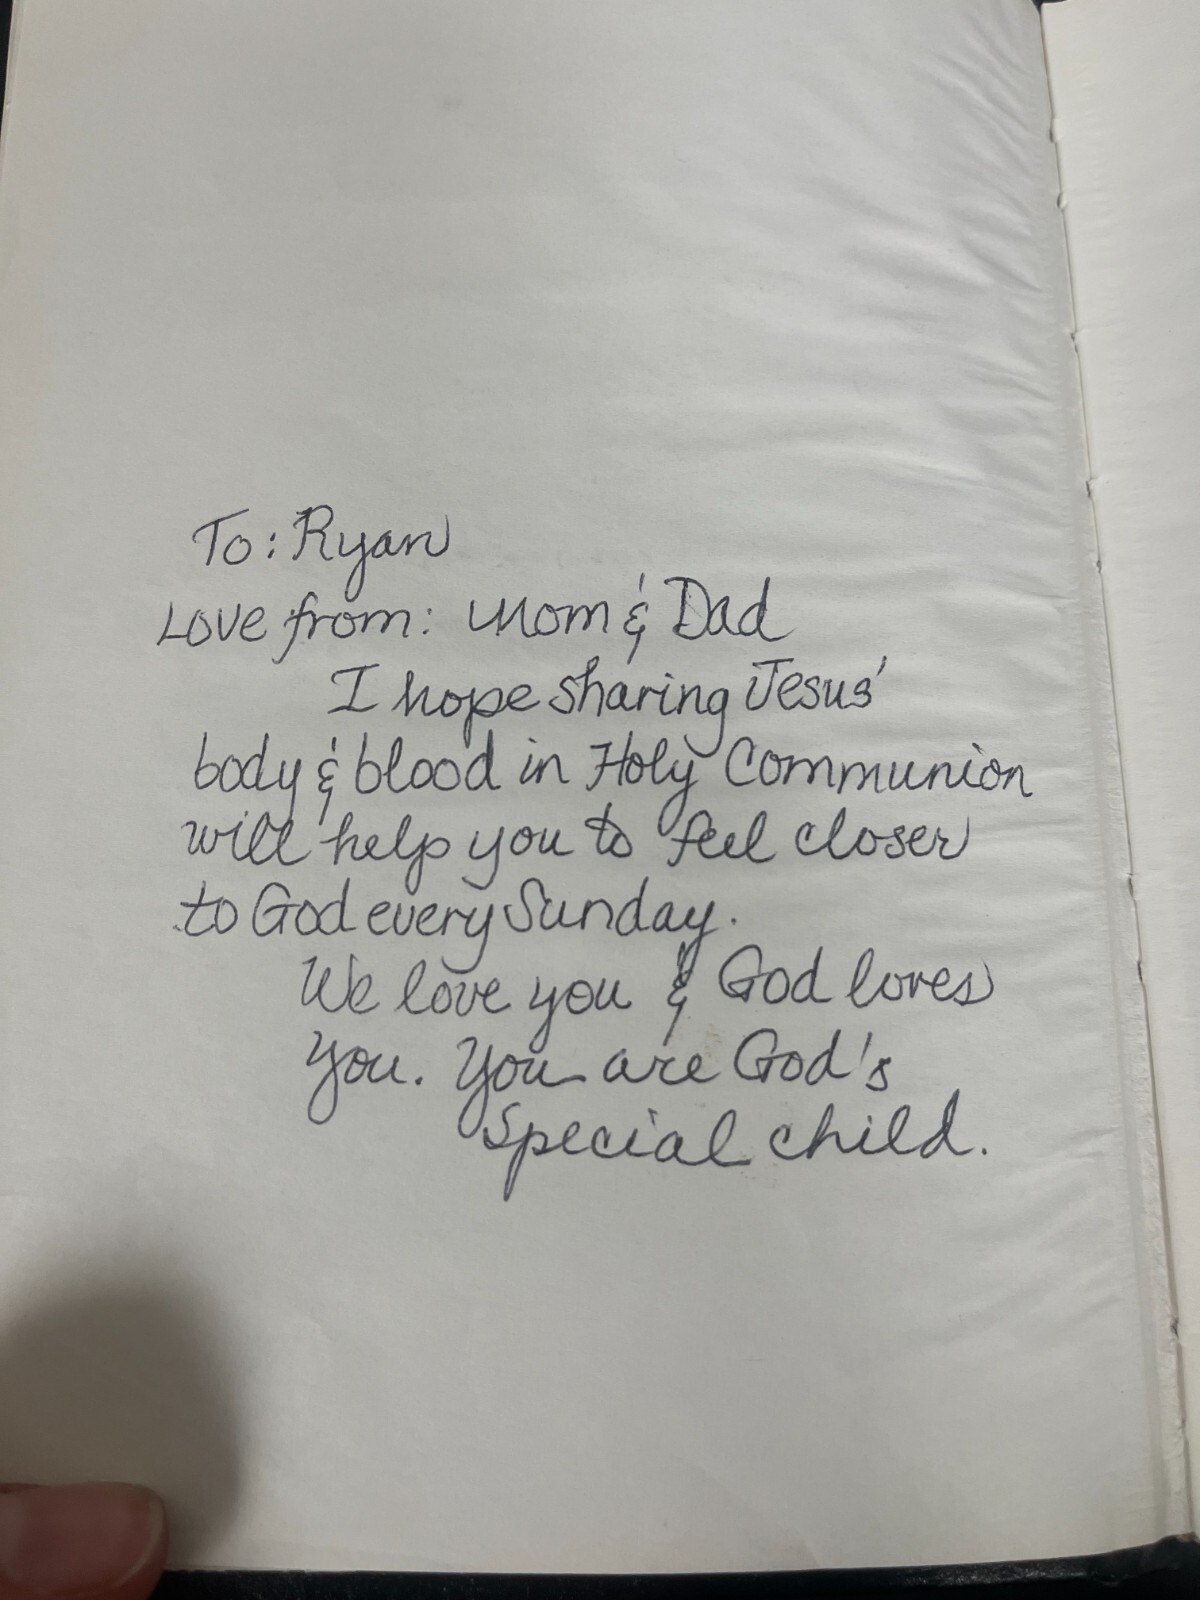 To: Ryan
Love from: Mom & Dad
I hope sharing Jesus'
body & blood in Holy Communion
will help you to feel closer
to God every Sunday.
We love you & God loves
you. You are God's
special child.